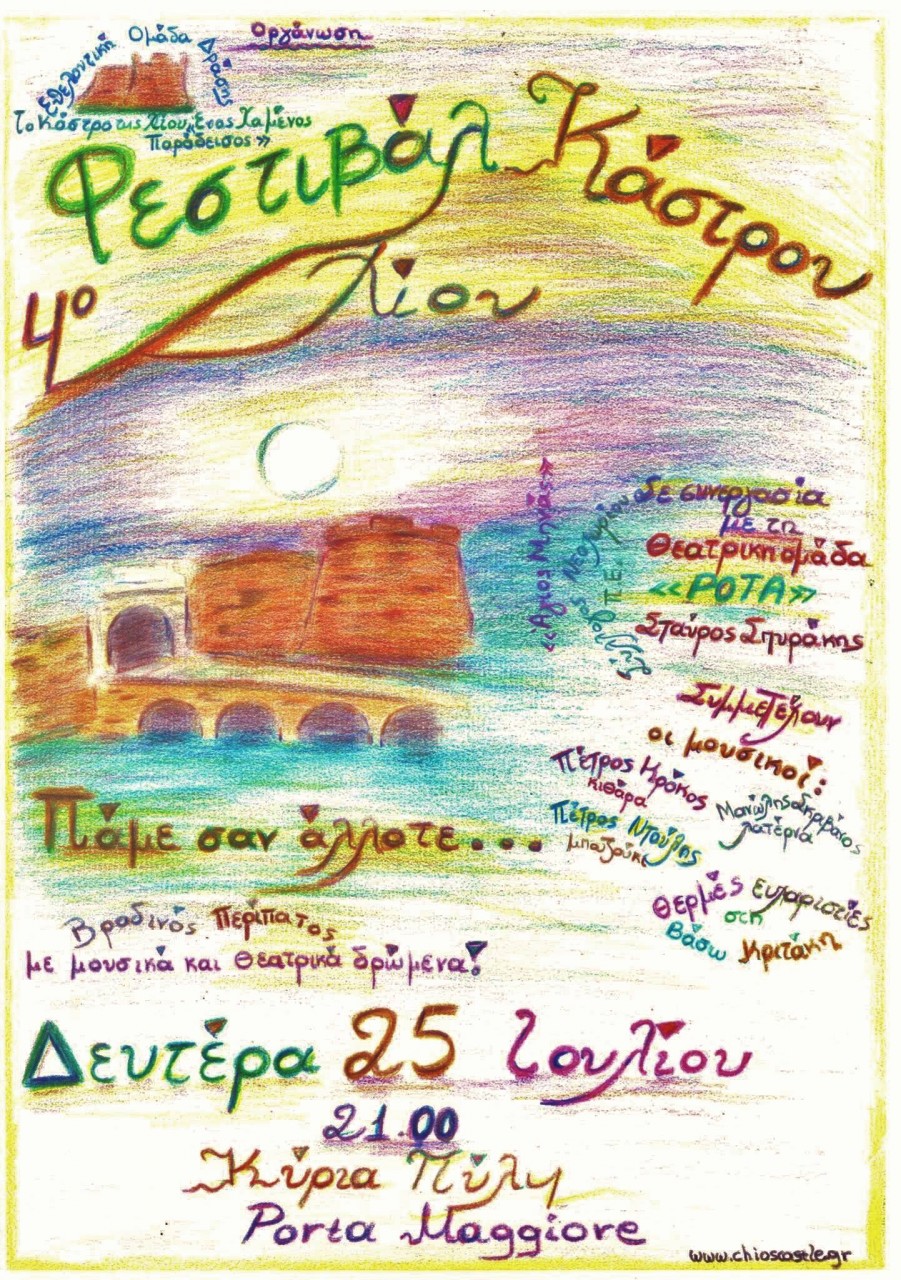 Οργάνωση
Εθελοντική Ομάδα Δράσης
Το Κάστρο της Χίου «Ένας Χαμένος
Παράδεισος»
4ο Φεστιβάλ Κάστρου
Χίου
Σε συνεργασία
με τη
Θεατρική ομάδα
«ΡΟΤΑ»
Σταύρος Σπυράκης
Νεοχωρίου
Π.Ε.
«Άγιος Μηνάς»
Συμμετέχουν
οι μουσικοί:
Πέτρος Κρόκος
κιθάρα
Μανώλης
λατέρνα
Πέτρος Ντούλης
μπουζούκι
Πάμε σαν άλλοτε...
Θερμές ευχαριστίες
στη
Βάσω Κριτάκη
Βραδινός Περίπατος
με μουσικά και θεατρικά δρώμενα!
Δευτέρα 25 Ιουλίου
21.00
Κύρια Πύλη
Porta Maggiore
www.chioscastle.gr